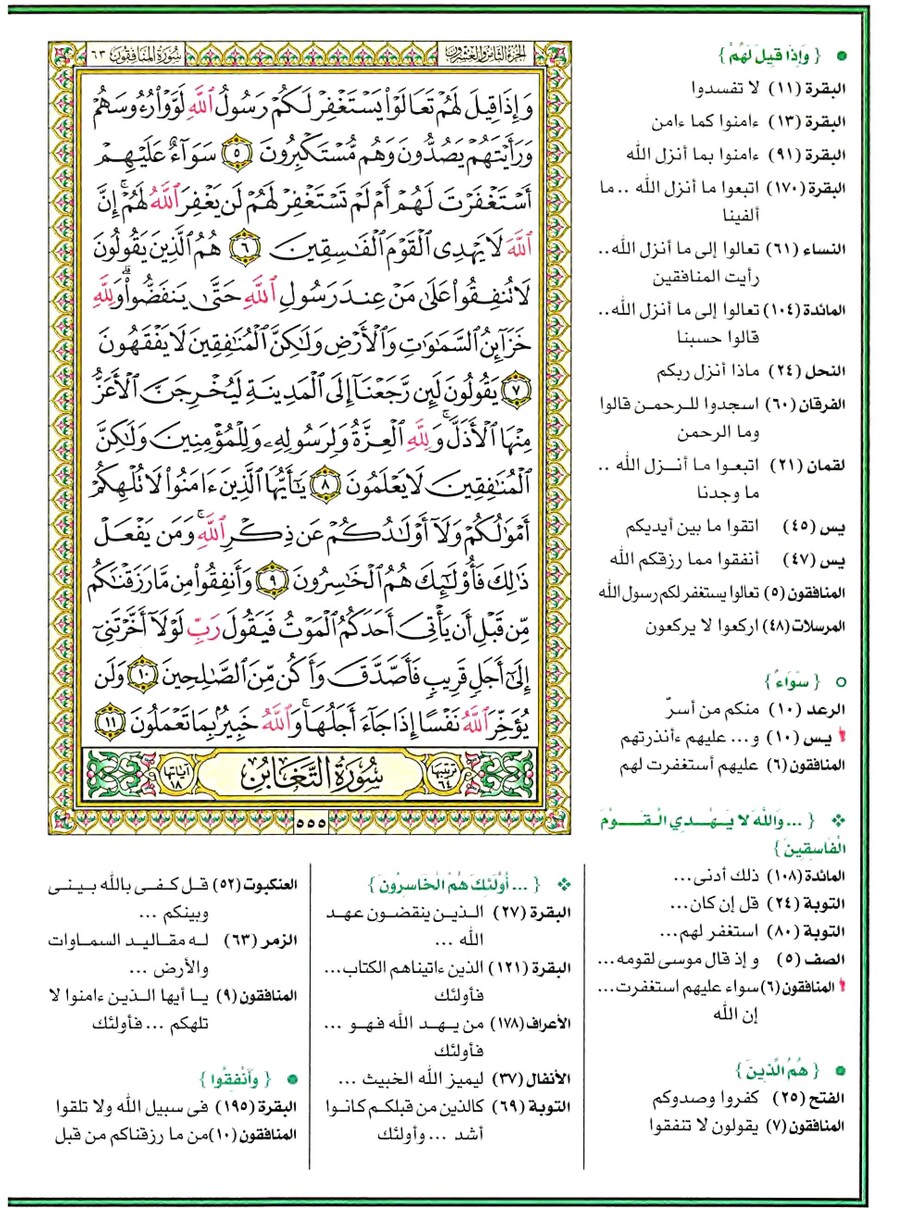 سُورَةُ المنَافِقُون ٦٣
الجُزءُ الثامِنُ وَالعِشرُون
وَإِذَا قِيلَ لَهُمْ تَعَالَوْا۟ يَسْتَغْفِرْ لَكُمْ رَسُولُ ٱللَّهِ لَوَّوْا۟ رُءُوسَهُمْ
وَرَأَيْتَهُمْ يَصُدُّونَ وَهُم مُّسْتَكْبِرُونَ ٥ سَوَآءٌ عَلَيْهِمْ
أَسْتَغْفَرْتَ لَهُمْ أَمْ لَمْ تَسْتَغْفِرْ لَهُمْ لَن يَغْفِرَ ٱللَّهُ لَهُمْ ۚ إِنَّ
ٱللَّهَ لَا يَهْدِى ٱلْقَوْمَ ٱلْفَـٰسِقِينَ ٦ هُمُ ٱلَّذِينَ يَقُولُونَ
لَا تُنفِقُوا۟ عَلَىٰ مَنْ عِندَ رَسُولِ ٱللَّهِ حَتَّىٰ يَنفَضُّوا۟ ۗ وَلِلَّهِ
خَزَآئِنُ ٱلسَّمَـٰوَٰتِ وَٱلْأَرْضِ وَلَـٰكِنَّ ٱلْمُنَـٰفِقِينَ لَا يَفْقَهُونَ
٧ يَقُولُونَ لَئِن رَّجَعْنَآ إِلَى ٱلْمَدِينَةِ لَيُخْرِجَنَّ ٱلْأَعَزُّ
مِنْهَا ٱلْأَذَلَّ ۚ وَلِلَّهِ ٱلْعِزَّةُ وَلِرَسُولِهِۦ وَلِلْمُؤْمِنِينَ وَلَـٰكِنَّ
ٱلْمُنَـٰفِقِينَ لَا يَعْلَمُونَ ٨ يَـٰٓأَيُّهَا ٱلَّذِينَ ءَامَنُوا۟ لَا تُلْهِكُمْ
أَمْوَٰلُكُمْ وَلَآ أَوْلَـٰدُكُمْ عَن ذِكْرِ ٱللَّهِ ۚ وَمَن يَفْعَلْ
ذَٰلِكَ فَأُو۟لَـٰٓئِكَ هُمُ ٱلْخَـٰسِرُونَ ٩ وَأَنفِقُوا۟ مِن مَّا رَزَقْنَـٰكُم
مِّن قَبْلِ أَن يَأْتِىَ أَحَدَكُمُ ٱلْمَوْتُ فَيَقُولَ رَبِّ لَوْلَآ أَخَّرْتَنِىٓ
إِلَىٰٓ أَجَلٍ قَرِيبٍ فَأَصَّدَّقَ وَأَكُن مِّنَ ٱلصَّـٰلِحِينَ ١٠ وَلَن
يُؤَخِّرَ ٱللَّهُ نَفْسًا إِذَا جَآءَ أَجَلُهَا ۚ وَٱللَّهُ خَبِيرٌۢ بِمَا تَعْمَلُونَ ١١
ترتيبها ٦٤ سُورَةُ التَّغَابُن آياتها ١٨
٥٥٥
{ وَإِذَا قِيلَ لَهُمْ }
البقرة (١١) لا تفسدوا
البقرة (١٣) ءامنوا كما ءامن
البقرة (٩١) ءامنوا بما أنزل الله
البقرة (١٧٠) اتبعوا ما أنزل الله .. ما
ألفينا
النساء (٦١) تعالوا إلى ما أنزل الله..
رأيت المنافقين
المائدة (١٠٤) تعالوا إلى ما أنزل الله..
قالوا حسبنا
النحل (٢٤) ماذا أنزل ربكم
الفرقان (٦٠) اسجدوا للرحمن قالوا
وما الرحمن
لقمان (٢١) اتبعوا ما أنزل الله ..
ما وجدنا
يس (٤٥) اتقوا ما بين أيديكم
يس (٤٧) أنفقوا مما رزقكم الله
المنافقون (٥) تعالوا يستغفر لكم رسول الله
المرسلات (٤٨) اركعوا لا يركعون
{ سَوَاءٌ }
الرعد (١٠) منكم من أسرّ
يس (١٠) و... عليهم ءأنذرتهم
المنافقون (٦) عليهم أستغفرت لهم
{ ... وَاللَّهُ لَا يَهْدِي الْقَوْمَ
الْفَاسِقِينَ }
المائدة (١٠٨) ذلك أدنى...
التوبة (٢٤) قل إن كان...
التوبة (٨٠) استغفر لهم...
الصف (٥) وإذ قال موسى لقومه...
المنافقون (٦) سواء عليهم استغفرت...
إن الله
{ هُمُ الَّذِينَ }
الفتح (٢٥) كفروا وصدوكم
المنافقون (٧) يقولون لا تنفقوا
{ ... أُوْلَئِكَ هُمُ الْخَاسِرُونَ }
البقرة (٢٧) الذين ينقضون عهد
الله ...
البقرة (١٢١) الذين ءاتيناهم الكتاب...
فأولئك
الأعراف (١٧٨) من يهد الله فهو ...
فأولئك
الأنفال (٣٧) ليميز الله الخبيث ...
التوبة (٦٩) كالذين من قبلكم كانوا
أشد ... وأولئك
العنكبوت (٥٢) قل كفى بالله بيني
وبينكم ...
الزمر (٦٣) له مقاليد السماوات
والأرض ...
المنافقون (٩) يا أيها الذين ءامنوا لا
تلهكم ... فأولئك
{ وَأَنْفِقُوا }
البقرة (١٩٥) في سبيل الله ولا تلقوا
المنافقون (١٠) من ما رزقناكم من قبل